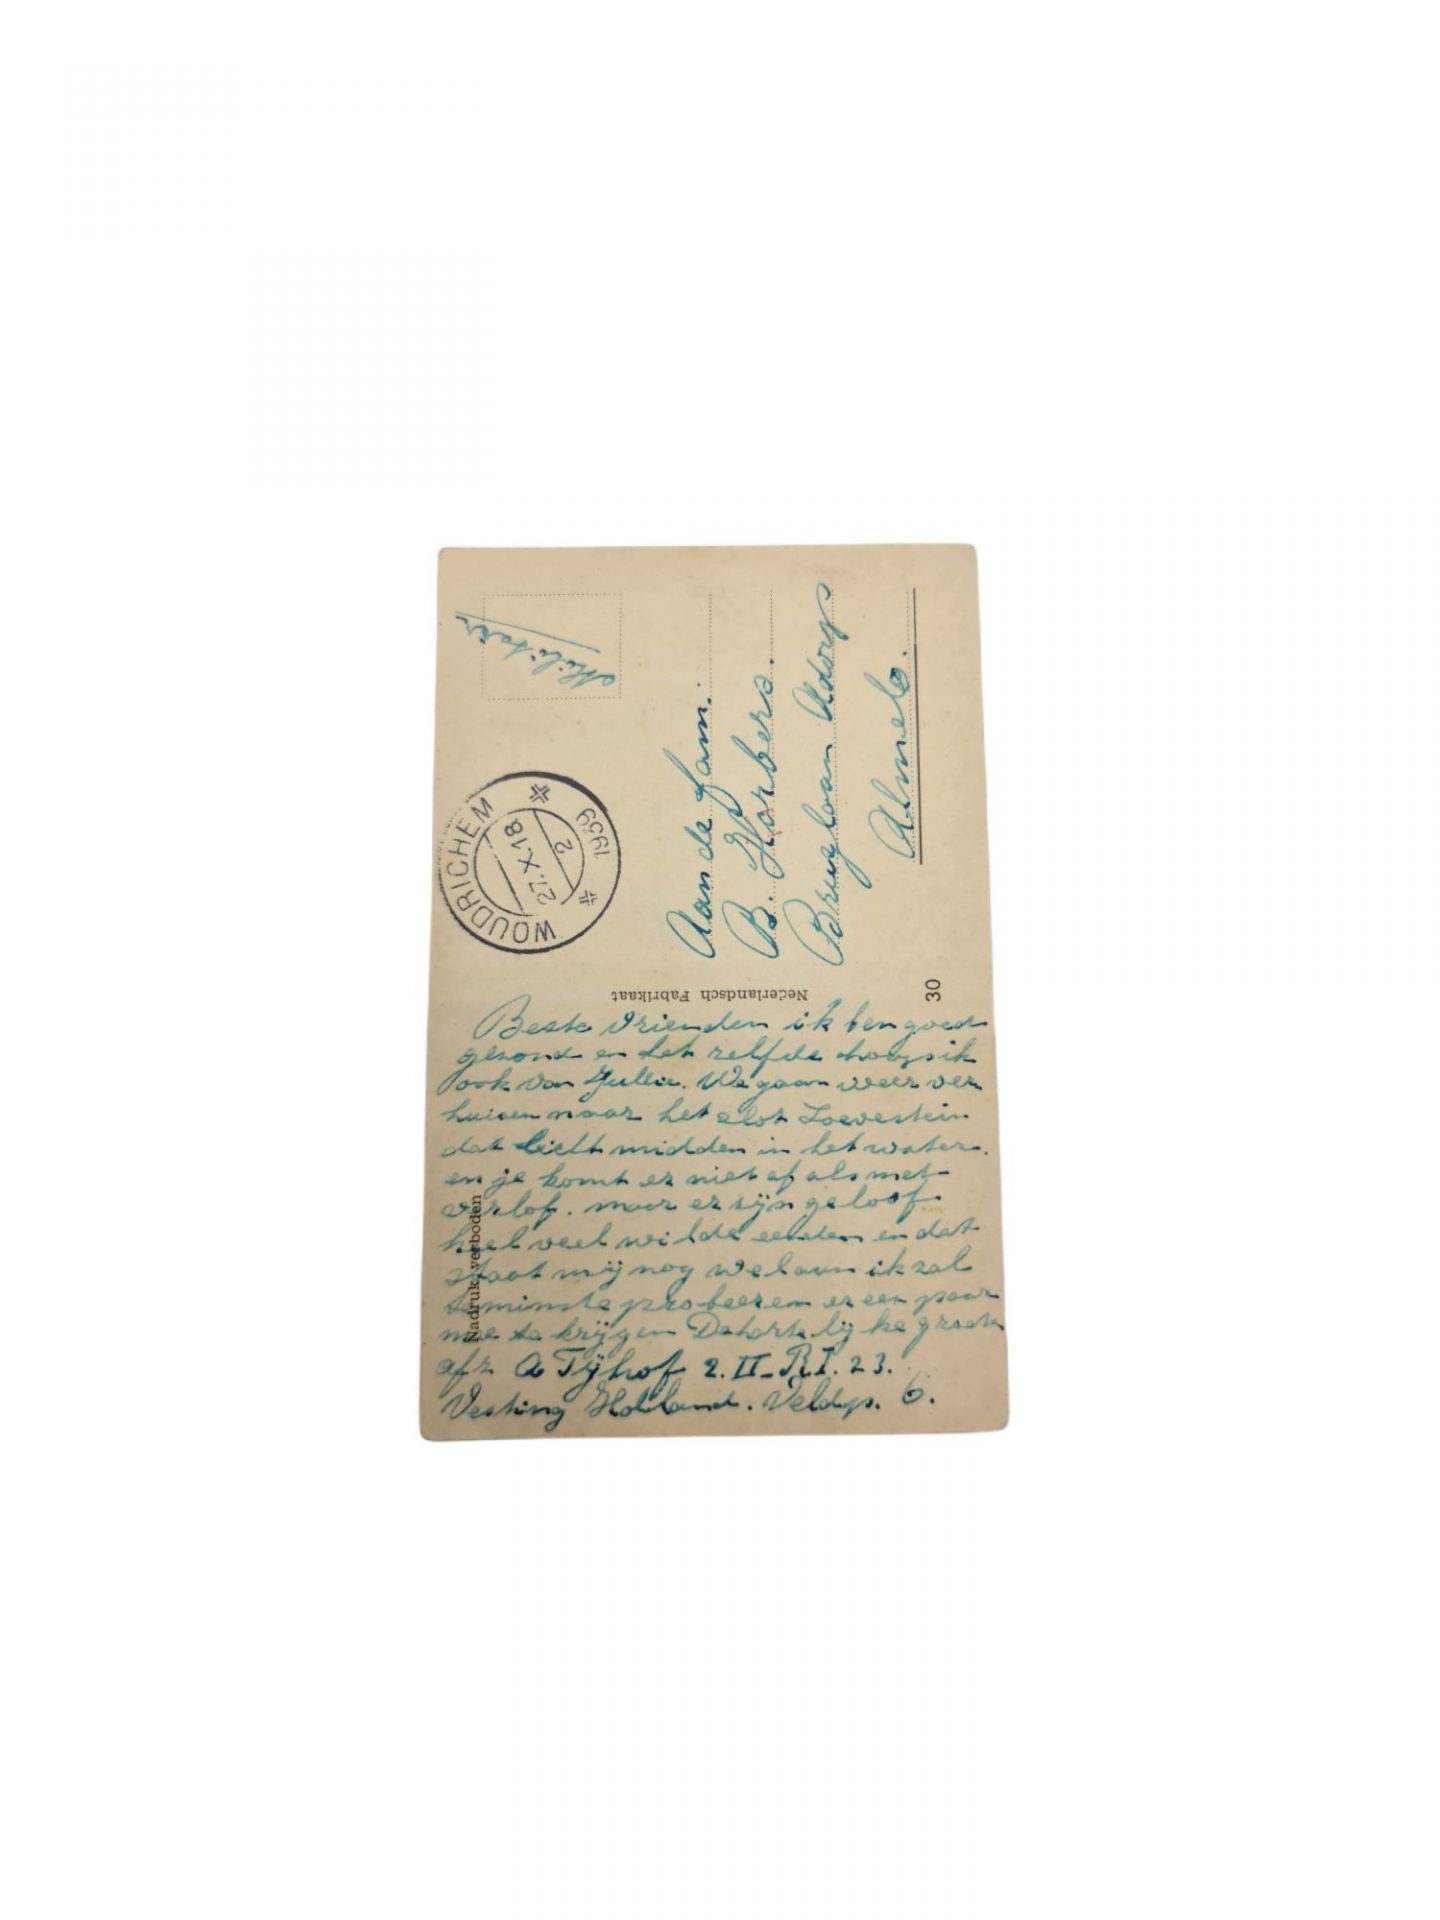 Militair
WOUDRICHEM
27.X.18
2
1939
Aan de fam.
B. Horbers.
Bruglaan Adorp
Almelo.
Nederlandsch Fabrikaat
30
Nadruk verboden
Beste Vrienden ik ben goed
gezond en het zelfde hoop ik
ook van Jullie. We gaan weer ver
huisen naar het slot Loevestein
dat licht midden in het water.
en je komt er niet af als met
verlof. maar er zijn geloof
heel veel wilde eenden en dat
staat mij nog wel aan ik zal
teminste probeeren er een paar
mee te krijgen De hartelijke groeten
afz A Tijhof 2. II-R.I. 23.
Vesting Holland. Veldp. 6.